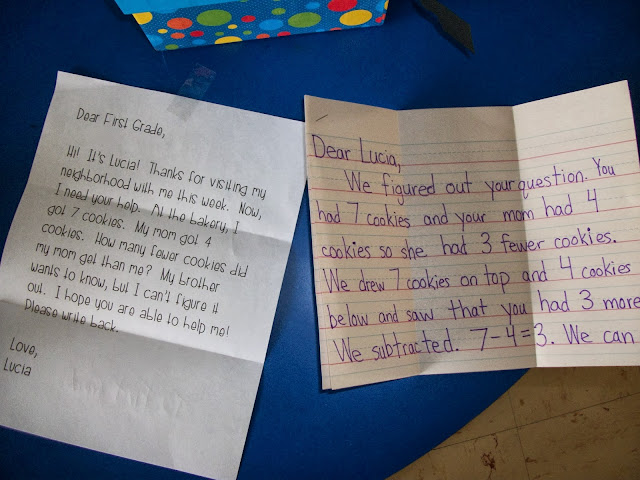 Dear First Grade,
Hi! It's Lucia! Thanks for visiting my
neighborhood with me this week. Now,
I need your help. At the bakery, I
got 7 cookies. My mom got 4
cookies. How many fewer cookies did
my mom get than me? My brother
wants to know, but I can't figure it
out. I hope you are able to help me!
Please write back.
Love,
Lucia
Dear Lucia,
We figured out your question. You
had 7 cookies and your mom had 4
cookies so she had 3 fewer cookies.
We drew 7 cookies on top and 4 cookies
below and saw that you had 3 more
We subtracted. 7-4=3. We can